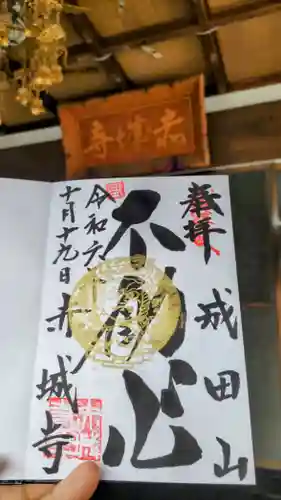 赤城寺
奉拝
成田山
不動心
令和六
十月十九日
赤城寺